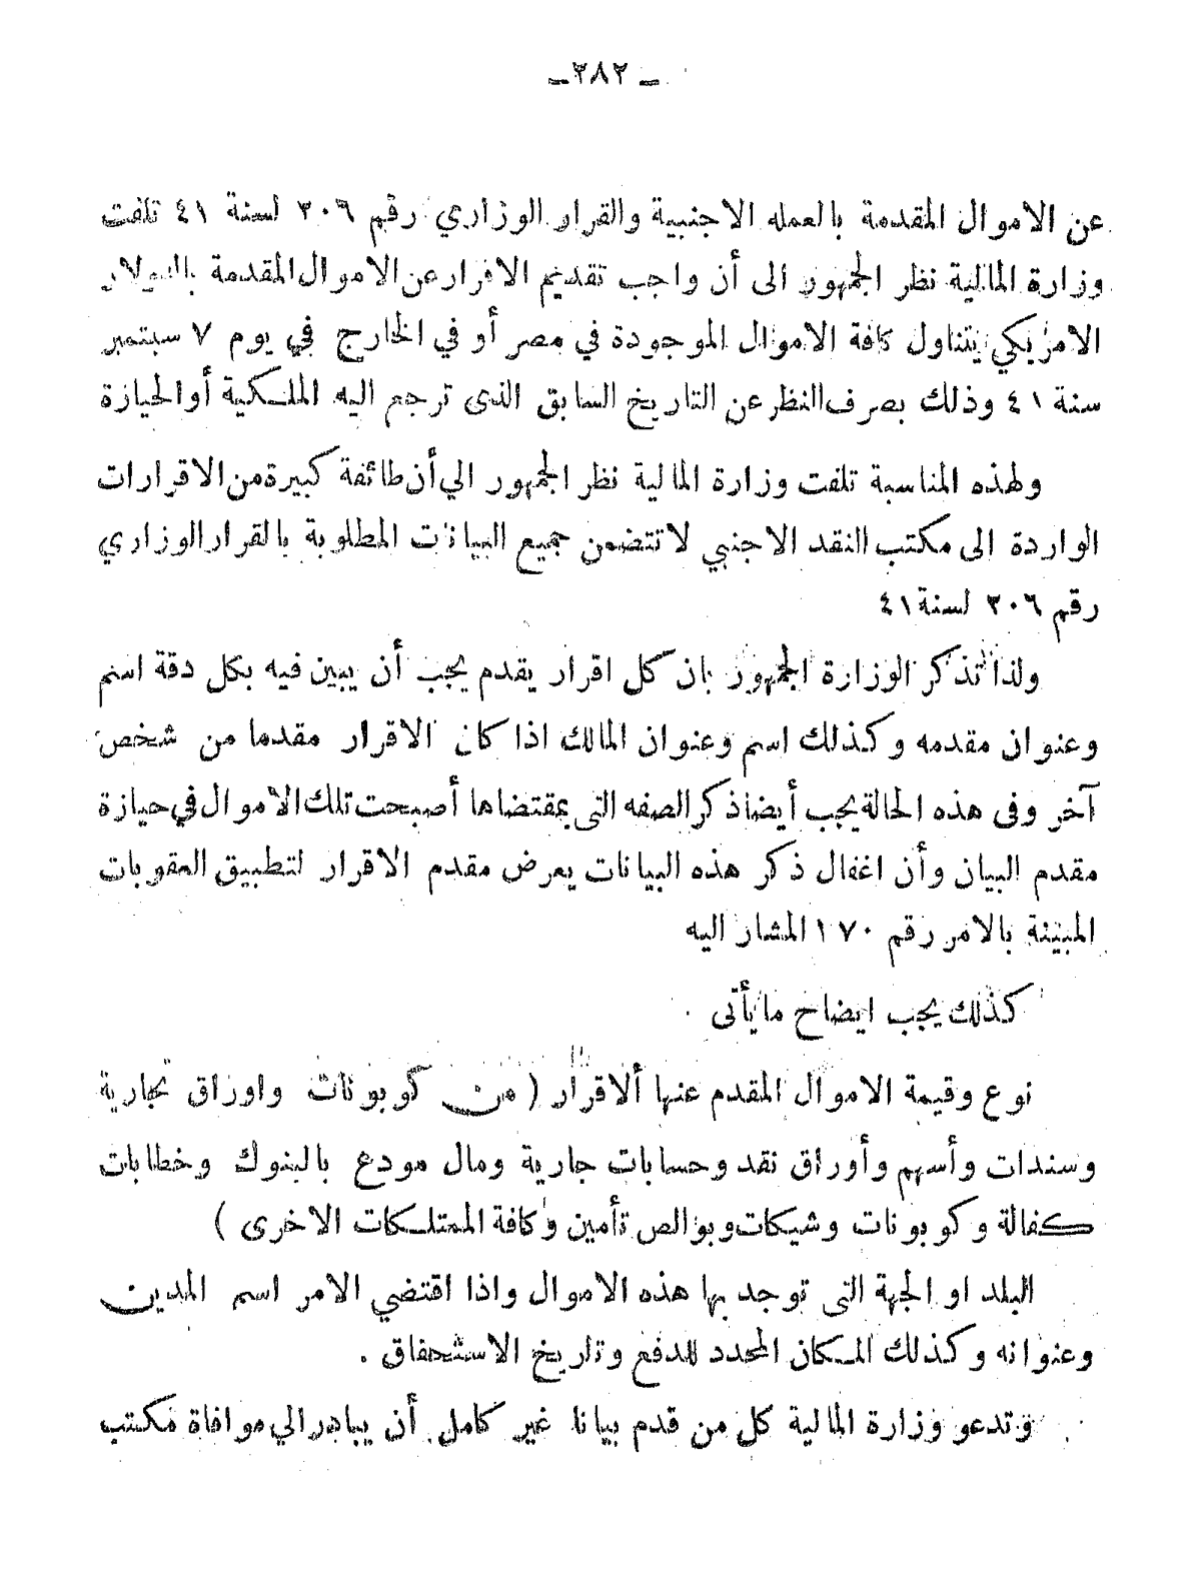 ـ ٣٨٢ ـ
عن الاموال المقدمة بالعمله الاجنبية والقرار الوزاري رقم ٣٠٦ لسنة ٤١ تلفت
وزارة المالية نظر الجمهور الى أن واجب تقديم الاقرار عن الاموال المقدمة بالدولار
الامريكي يتناول كافة الاموال الموجودة في مصر أو في الخارج في يوم ٧ سبتمبر
سنة ٤١ وذلك بصرف النظر عن التاريخ السابق الذى ترجع اليه الملكية أوالحيازة
ولهذه المناسبة تلفت وزارة المالية نظر الجمهور الي أن طائفة كبيرة من الاقرارات
الواردة الى مكتب النقد الاجنبي لا تتضمن جميع البيانات المطلوبة بالقرار الوزاري
رقم ٣٠٦ لسنة ٤١
ولذا تذكر الوزارة الجمهور بان كل اقرار يقدم يجب أن يبين فيه بكل دقة اسم
وعنوان مقدمه وكذلك اسم وعنوان المالك اذا كان الاقرار مقدما من شخص
آخر وفى هذه الحالة يجب أيضا ذكر الصفه التى بمقتضاها أصبحت تلك الاموال في حيازة
مقدم البيان وأن اغفال ذكر هذه البيانات يعرض مقدم الاقرار لتطبيق العقوبات
المبينة بالامر رقم ١٧٠ المشار اليه
كذلك يجب ايضاح ما يأتى .
نوع وقيمة الاموال المقدم عنها ألاقرار ( من كوبونات واوراق تجارية
وسندات وأسهم وأوراق نقد وحسابات جارية ومال مودع بالبنوك وخطابات
كفالة وكوبونات وشيكات وبوالص تأمين وكافة الممتلكات الاخرى )
البلد او الجهة التى توجد بها هذه الاموال واذا اقتضي الامر اسم المدين
وعنوانه وكذلك المكان المحدد للدفع وتاريخ الاستحقاق .
وتدعو وزارة المالية كل من قدم بيانا غير كامل أن يبادر الي موافاة مكتب